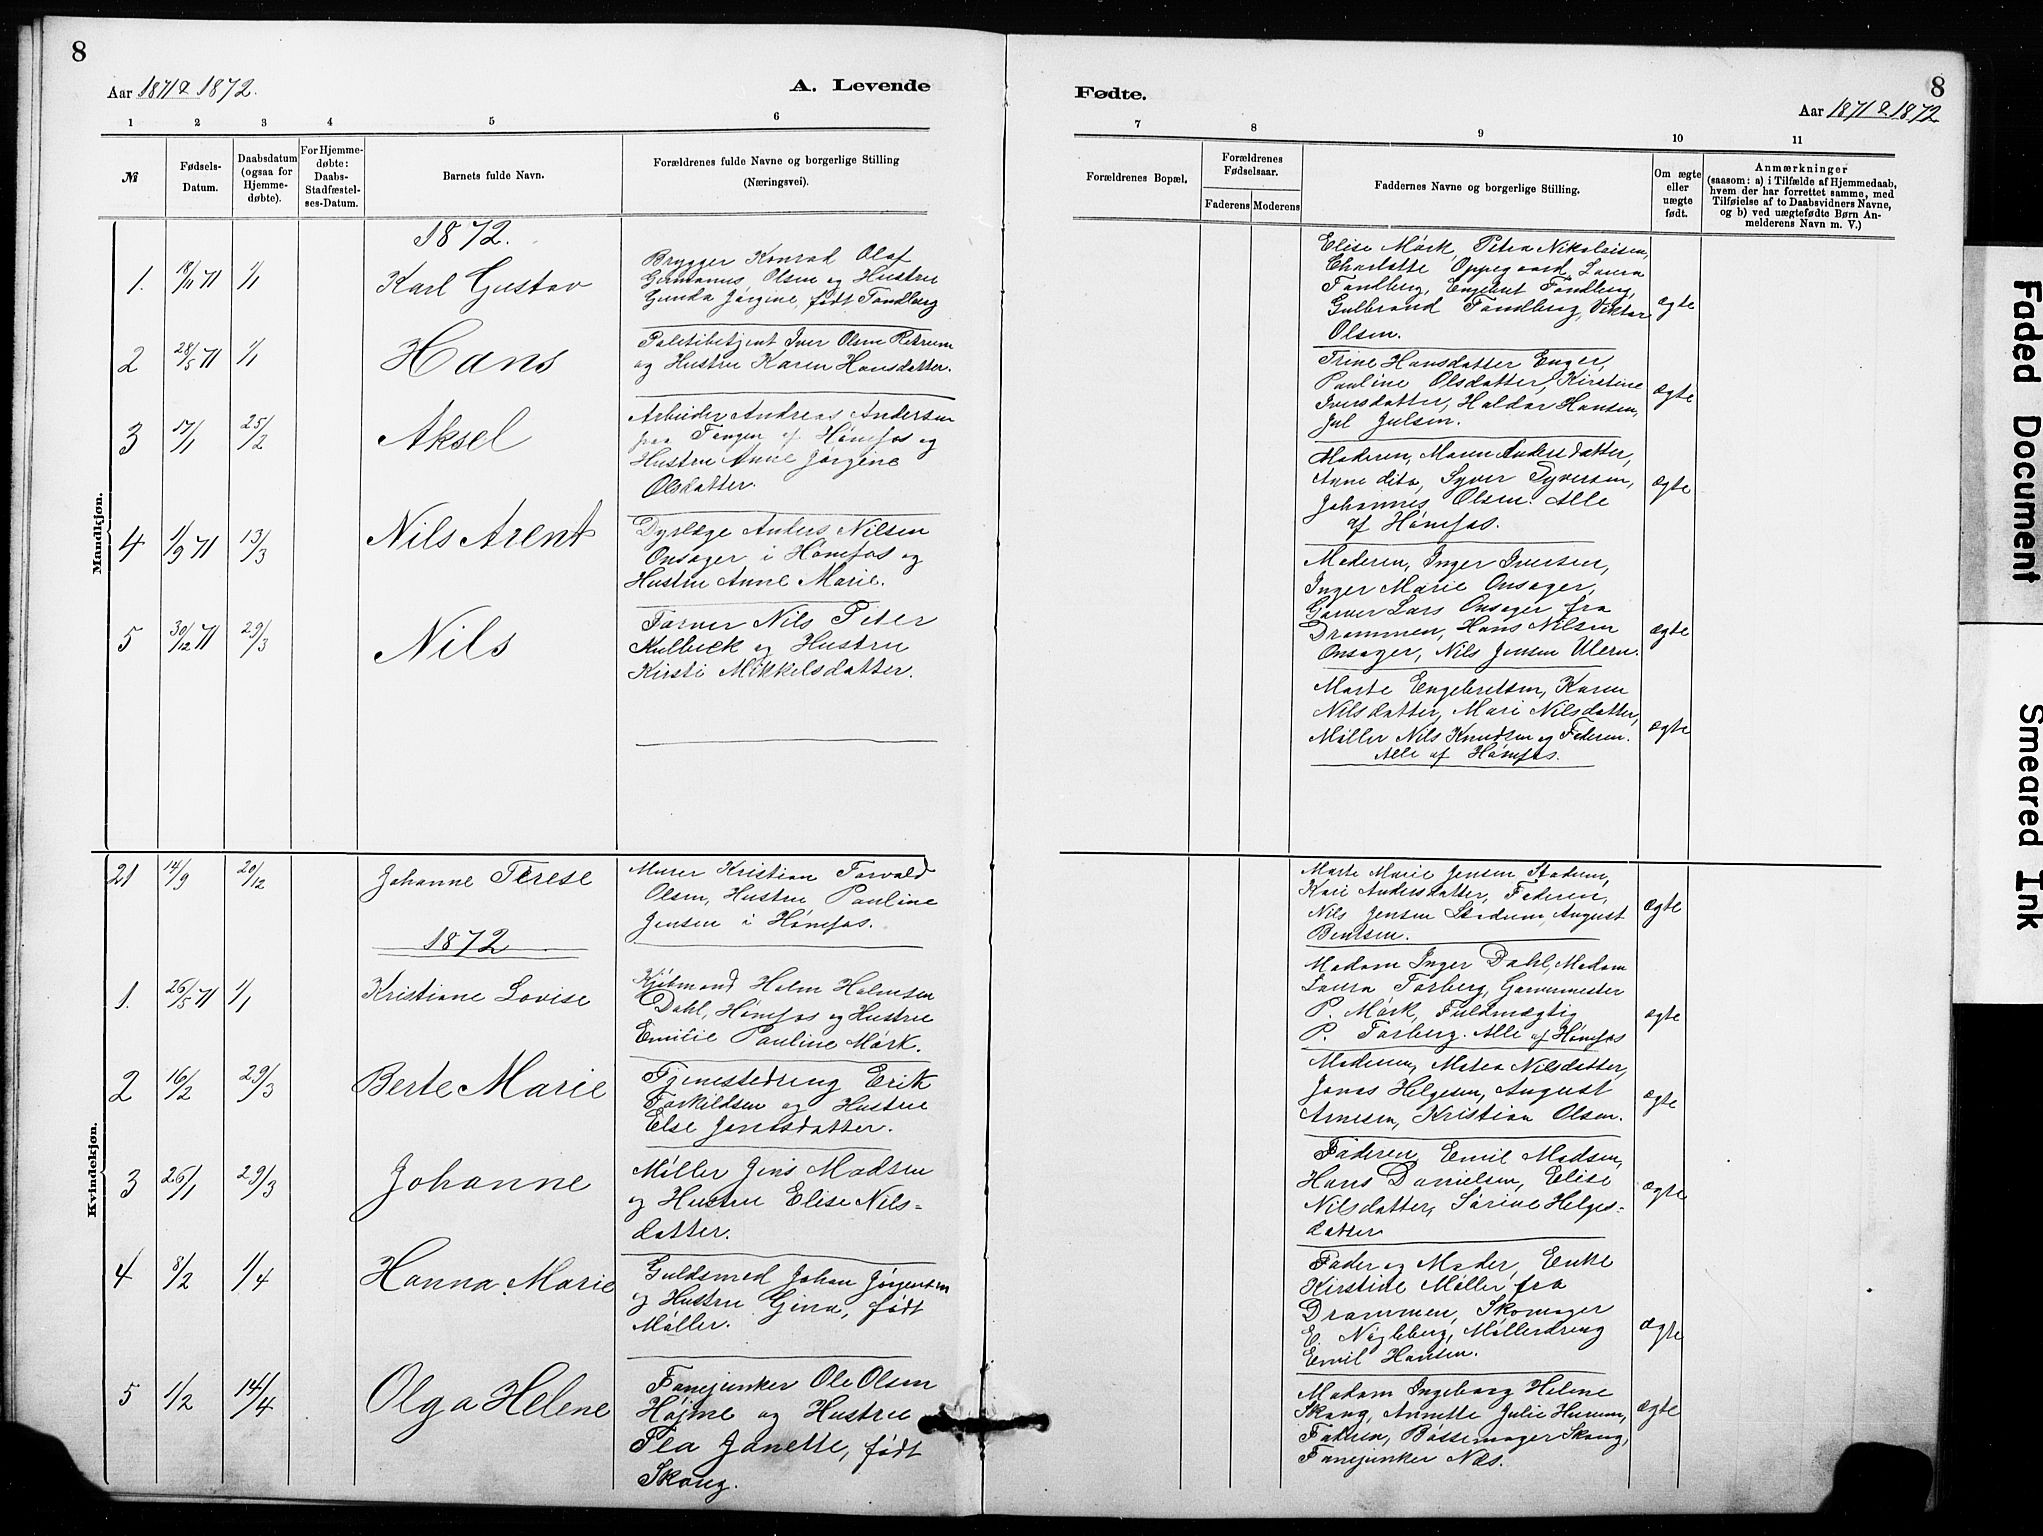 8
Aar 1871 & 1872.
A. Levende
1 2 3 4 5 6
№
Fødsels-Datum.
Daabsdatum (ogsaa for Hjemme-døbte).
For Hjemme-døbte: Daabs-Stadfæstel-ses-Datum.
Barnets fulde Navn.
Forældrenes fulde Navne og borgerlige Stilling
(Næringsvei).
Mandkjøn.
1872.
1. 18/11 71 1/1 Karl Gustav
Brygger Konrad Olaf
Germanus Olsen og Hustru
Gunda Jørgine, født Tandberg
2 28/5 71 1/1 Hans
Politibetjent Iver Olsen
og Hustru Karen Hansdatter.
3 17/1 25/2 Aksel
Arbeider Andreas Andersen
fra Tangen af Hønefos og
Hustru Anne Jørgine
Olsdatter.
4 1/9 71 13/3 Nils Arent
Dyrlæge Anders Nilsen
Onsager i Hønefos og
Hustru Anne Marie.
5 30/12 71 29/3 Nils
Farver Nils Peter
Kulbeck og Hustru
Kirsti Mikkelsdatter.
Kvindekjøn.
21 14/9 20/12 Johanne Terese
Murer Kristian Torvald
Olsen, Hustru Pauline
Jensen i Hønefos.
1872
1. 26/5 71 1/1 Kristiane Lovise
Kjøbmand Holm Holmsen
Dahl, Hønefos og Hustru
Emilie Pauline Mørk.
2 16/2 29/3 Berte Marie
Tjenestedreng Erik
Torkildsen og Hustru
Else Jonasdatter.
3 26/1 29/3 Johanne
Møller Jens Madsen
og Hustru Elise Nils-
datter.
4 8/2 1/4 Hanna Marie
Guldsmed Johan Jørgensen
og Hustru Gina, født
Møller.
5 1/2 14/4 Olga Helene
Fanejunker Ole Olsen
Højme og Hustru
Pla Janette, født
Skaug.
Fødte.
8
Aar 1871 & 1872
7 8 9 10 11
Forældrenes Bopæl.
Forældrenes Fødselsaar.
Faderens Moderens
Faddernes Navne og borgerlige Stilling.
Om ægte eller uægte født.
Anmærkninger
(saasom: a) i Tilfælde af Hjemmedaab,
hvem der har forrettet samme, med
Tilføielse af to Daabsvidners Navne,
og b) ved uægtefødte Børn An-
melderens Navn m. V.)
Elise Mørk, Petra Nikolaisen,
Charlotte Oppegaard, Laura
Tandberg, Engebret Tandberg,
Gulbrand Tandberg, Viktor
Olsen.
ægte
Trine Hansdatter Enger,
Pauline Olsdatter, Kirstine
Iversdatter, Haldor Hansen,
Jul Julsen.
ægte
Moderen, Maren Andersdatter,
Anne dito, Syver Syversen,
Johannes Olsen. Alle
af Hønefos.
ægte
Moderen, Inger Iversen,
Inger Marie Onsager,
Garver Lars Onsager fra
Drammen, Hans Nilsen
Onsager, Nils Jensen Ulern.
ægte
Marte Engebretsen, Karen
Nilsdatter, Mari Nilsdatter,
Møller Nils Knudsen og Faderen.
Alle af Hønefos.
ægte
Marte Marie Jensen Stadum,
Kari Andersdatter, Faderen,
Nils Jensen Stadum, August
Bentsen.
ægte
Madam Inger Dahl, Madam
Laura Forberg, Garvermester
P. Mørk, Fuldmægtig
P. Forberg. Alle af Hønefos
ægte
Moderen, Matea Nilsdatter,
Jonas Helgesen, August
Arnesen, Kristian Olsen.
ægte
Faderen, Emil Madsen,
Hans Danielsen, Elise
Nilsdatter, Sørine Helges-
datter
ægte
Fader og Moder, Enke
Kirstine Møller fra
Drammen, Skomager
E. Nøgleberg, Møllerdreng
Emil Hansen.
ægte
Madam Ingeborg Helene
Skaug, Annette Julie Hurum,
Faderen, Bøssemager Skaug,
Fanejunker Næs.
ægte
Faded Document
Smeared Ink